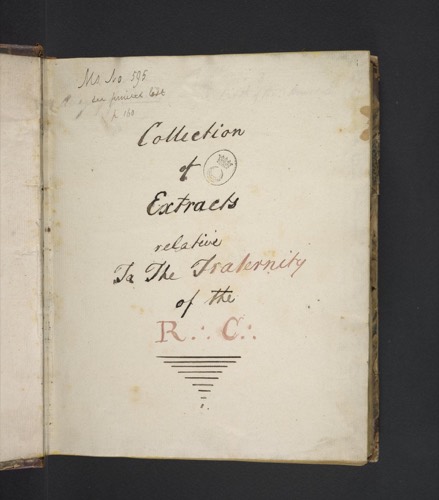 Ms. Soc. 595
see printed Cat
p. 160
Collection
of
Extracts
relative
To The Fraternity
of the
R∴ C∴